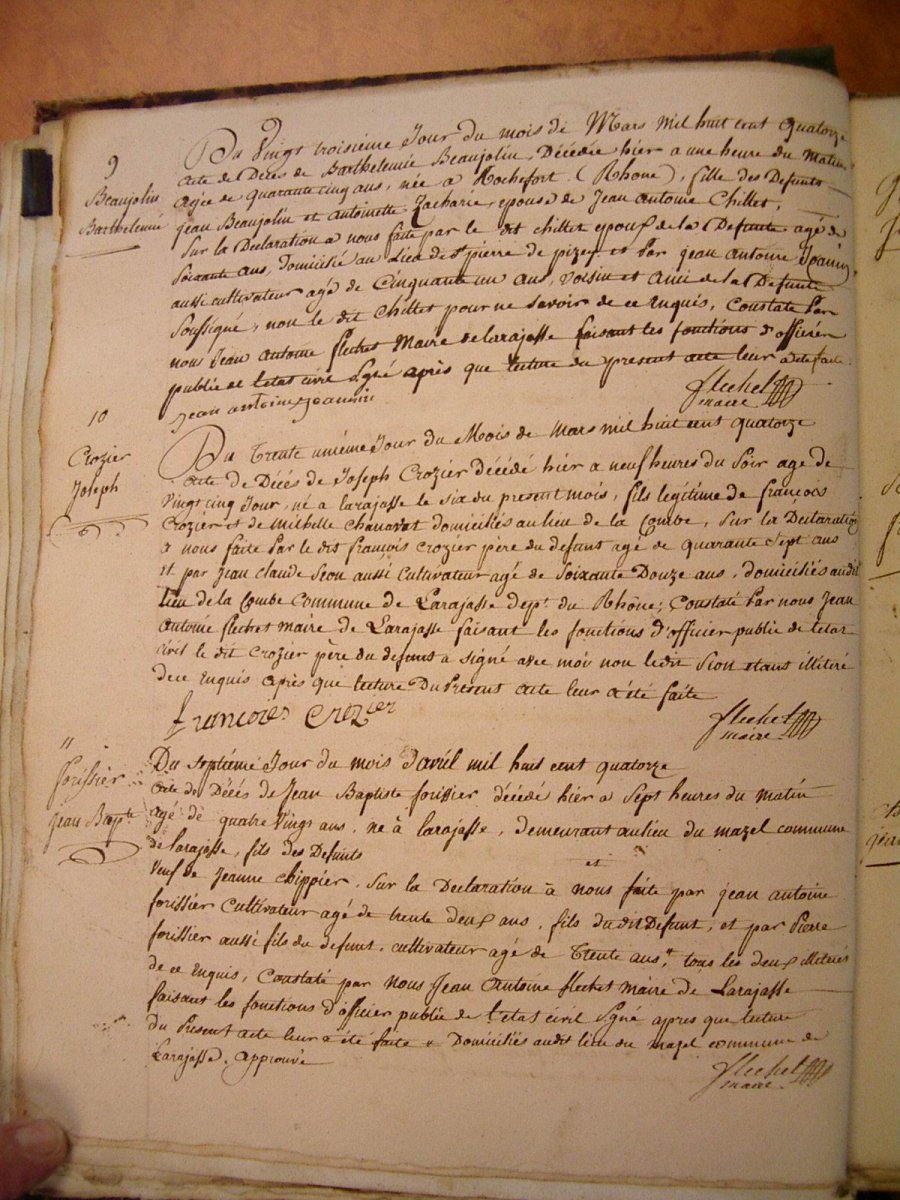 9
Beaujolin
Barthelemie
Du Vingt troisième Jour du mois de Mars mil huit cent quatorze
acte de Décès de Barthelemie Beaujolin, Décédée hier a une heure du Matin
agée de quarante cinq ans, née a Rochefort (Rhone), fille des Defunts
jean Beaujolin et antoinette Zacharie, epouse de Jean Antoine Chillet,
Sur la Declaration a nous faite par le dit chillet epoux de la Defunte agé de
Soixante ans, domicilié au Lieu de St pierre de pizey et Par jean antoine Joannin
aussi cultivateur agé de Cinquante un ans, voisin et Ami de la Defunte
Soussigné, non le dit Chillet pour ne Savoir de ce Enquis, Constaté Par
nous Jean Antoine flechet Maire de larajasse faisant les fonctions d'officier
public de l'etat civil Signé après que lecture du present acte leur a été faite
jean antoine joannin
flechet
maire
10
Crozier
Joseph
Du Trente unième Jour du Mois de mars mil huit cent quatorze
acte de Décés de Joseph Crozier décédé hier a neuf heures du Soir agé de
Vingt cinq Jour, né a larajasse le six du present mois, fils legitime de françois
Crozier et de michelle chanavat domiciliés au lieu de la Combe, Sur la Déclaration
a nous faite Par le dit françois crozier père du defunt agé de quarante Sept ans
et par Jean claude Seon aussi Cultivateur agé de Soixante Douze ans, domiciliés audit
lieu de la Combe Commune de Larajasse dept. du Rhône; Constaté Par nous Jean
Antoine flechet maire de Larajasse faisant les fonctions d'officier public de l'etat
civil le dit Crozier père du defunt a signé avec moi non le dit Seon etant illitéré
de ce enquis après que lecture Du Présent acte leur a été faite
françoies Crozier
flechet
maire
11
forissier
Jean Bapte
Du septième Jour du mois d'avril mil huit cent quatorze
acte de Décés de Jean Baptiste forissier décédé hier a Sept heures du matin
agé de quatre vings ans, né à larajasse, demeurant au lieu du mazel commune
de larajasse, fils des Defunts et
Veuf de Jeanne Chippier. Sur la Declaration à nous faite par jean antoine
forissier Cultivateur agé de trente deux ans, fils dudit Defunt, et par Pierre
forissier aussi fils du defunt, cultivateur agé de Trente ans, tous les deux illiterés
de ce Enquis, Constaté par nous Jean Antoine flechet maire de Larajasse
faisant les fonctions d'officier public de l'etat civil Signé apres que lecture
du Present acte leur a été faite Domiciliés audit lieu du mazel commune de
Larajasse. approuvé
flechet
maire